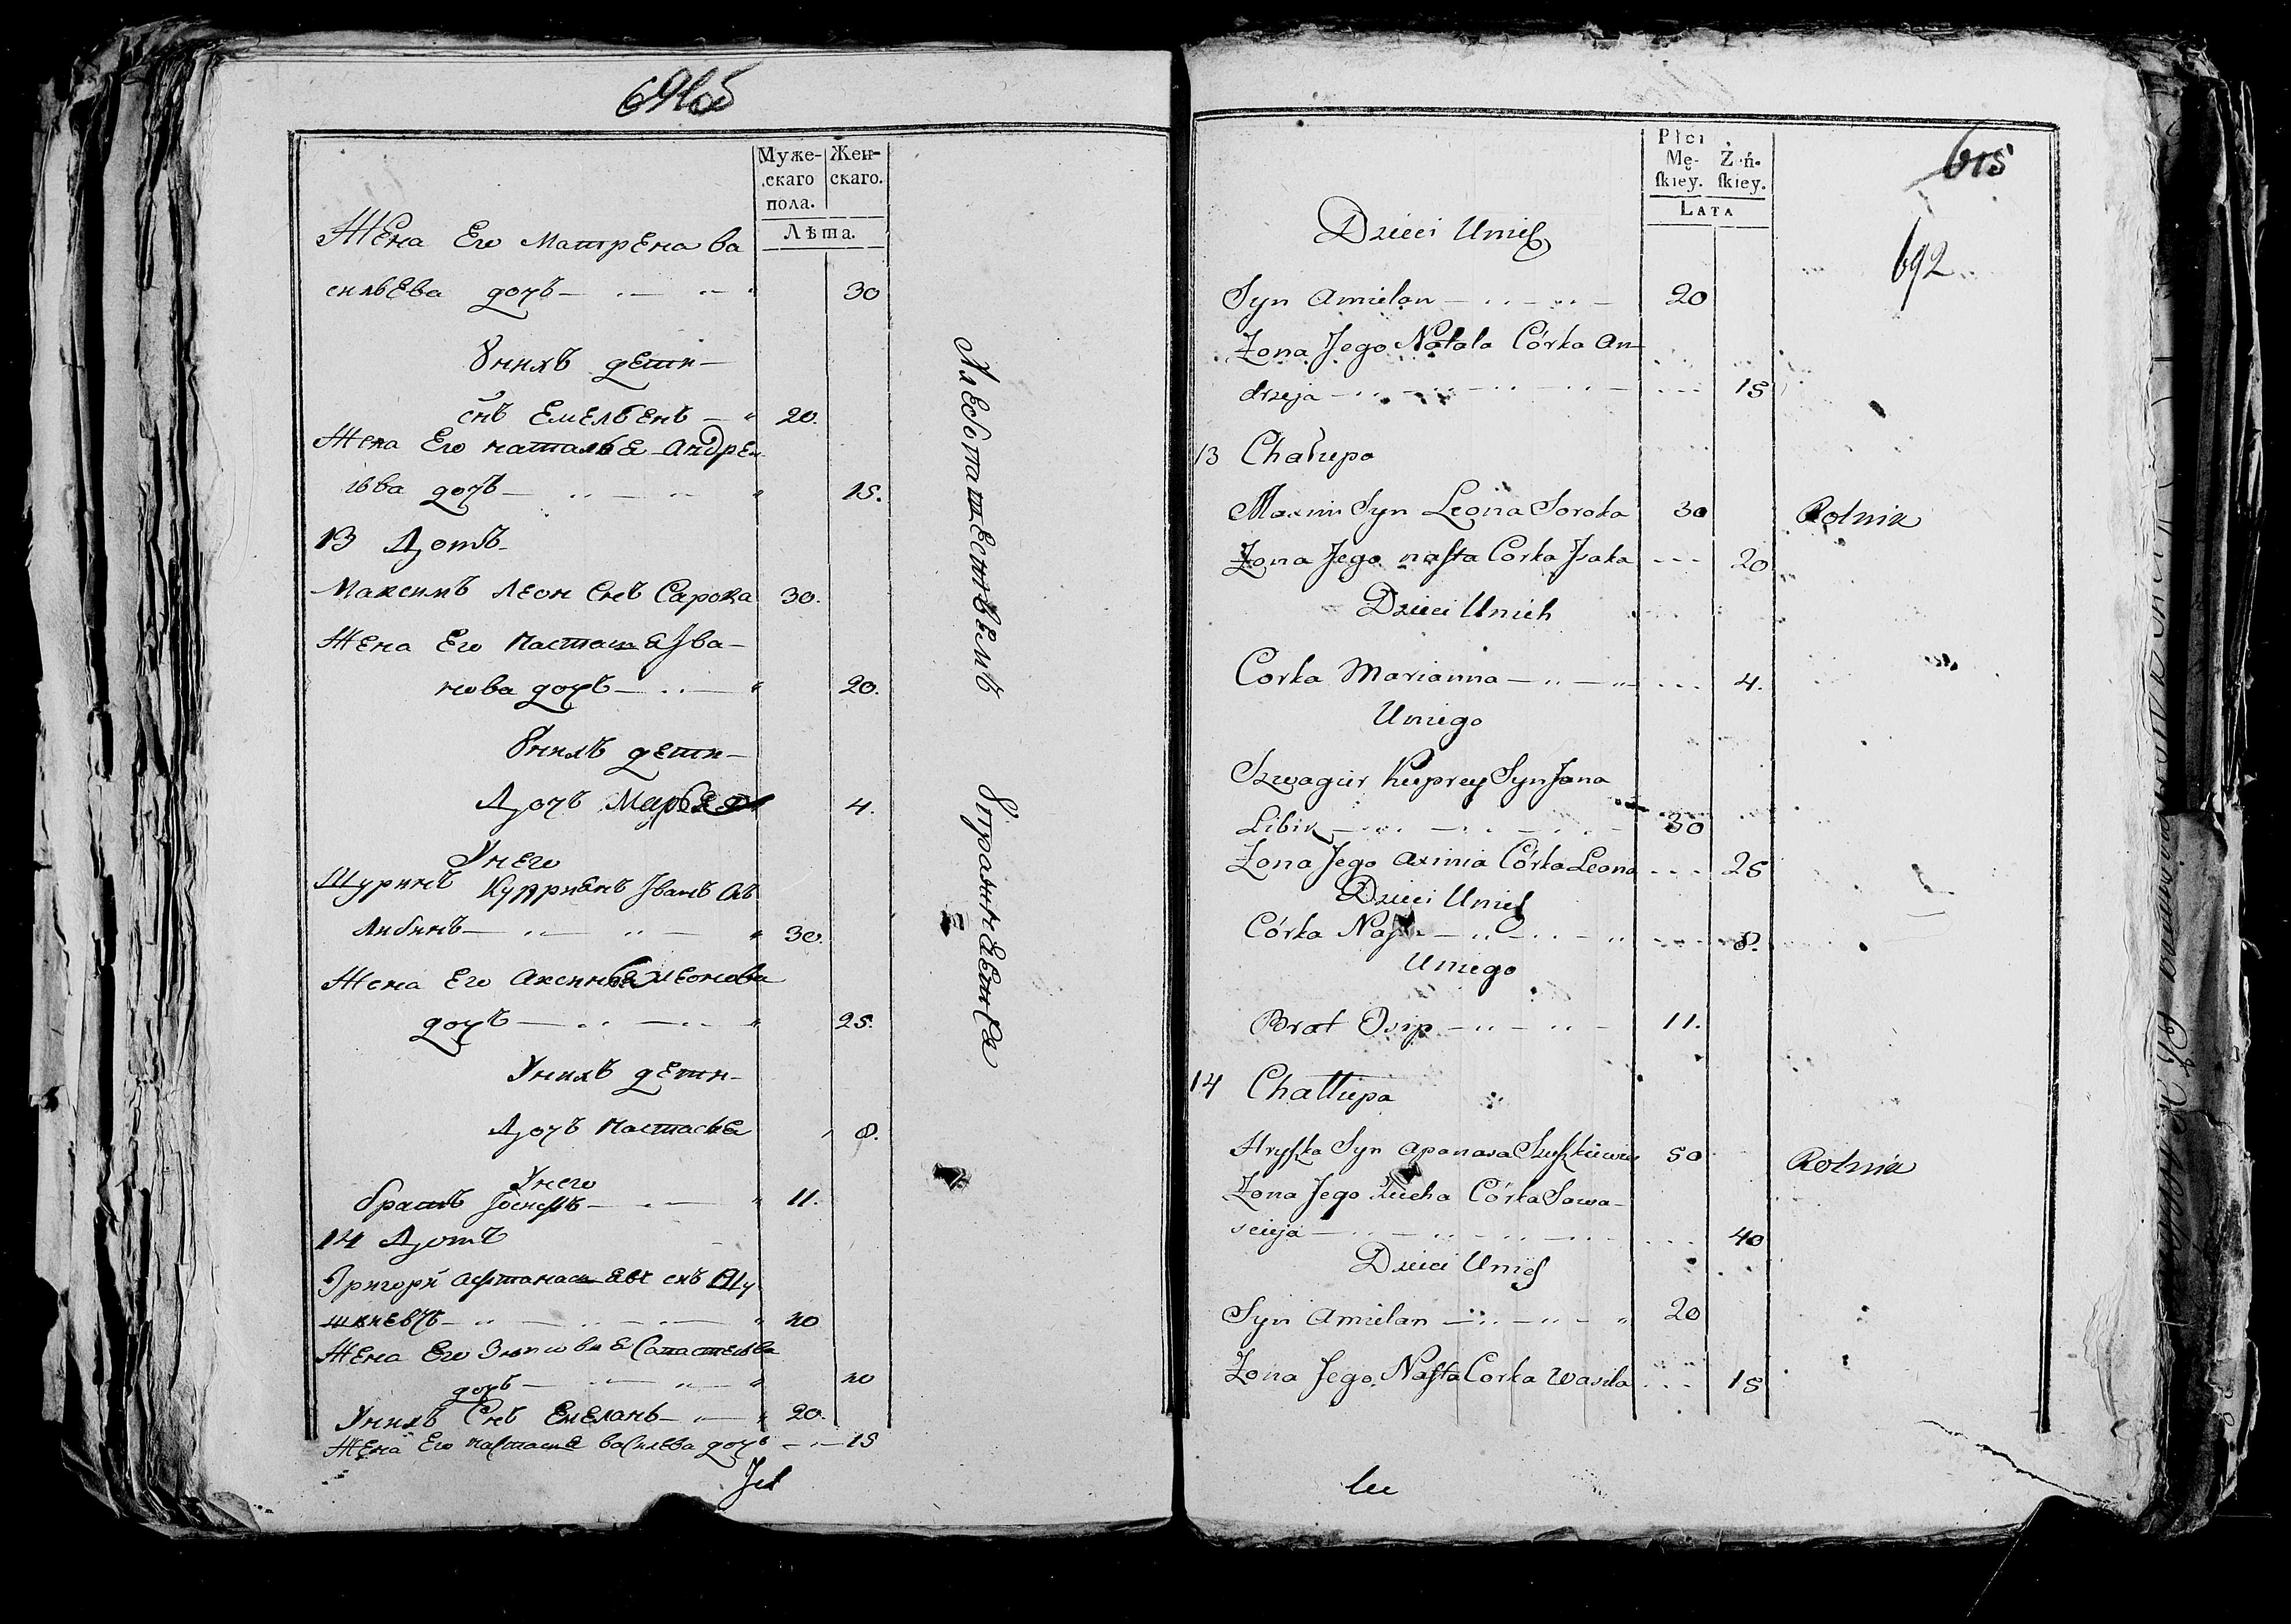 691об
Муже-
скаго
пола.
Жен-
скаго.
Лѣта.
Жена Его Матрена ва
сильева дочь 30
Ꙋнихъ дети
снъ Емельенъ 20.
Жена Его наталье Андре
ева дочь 15.
13 Домъ
Максимъ Леон Снъ Сарока 30.
Жена Его настасье Jва-
нова дочь 20.
Ꙋнихъ дети
Дочь Марья 4.
Унего
Шуринъ Куприянъ Jванъ Снъ
Либинъ 30.
Жена Его Аксинья леонова
дочь 25.
Унихъ дети
Дочь Настасье 8.
Унего
братъ Jосифъ 11.
14 Домъ
Григори
40
Жена Его
дочь 40
Унихъ Снъ Емеланъ 20.
Жена Его настасье василева дочь 15
Хлебопашествъемъ Ꙋпражнаетса
Płci
Mę-
ſkiey.
Ż.ń-
ſkiey.
LATA
615
692
Dzieci Unich
Syn Amielan 20
Żona Jego Natala Córka An-
drzeja 15
13 Chałupa
Maxim Syn Leona Soroka 30 Rolnik
Żona Jego nasta Corka Jsaka 20
Dzieci Unich
Corka Marianna 4.
Uniego
Szwagier Kuprey Syn Jana
Libik 30
Żona Jego Axinia Córka Leona 25
Dzieci Unich
Córka 8.
Uniego
Brat Osip 11.
14 Chattupa
Hryszka Syn Apanasa 50 Rolnik
Żona Jego Córka Sowa-
scieja 40
Dzieci Unich
Syn Amielan 20
Żona Jego Nasta Corka Wasila 15